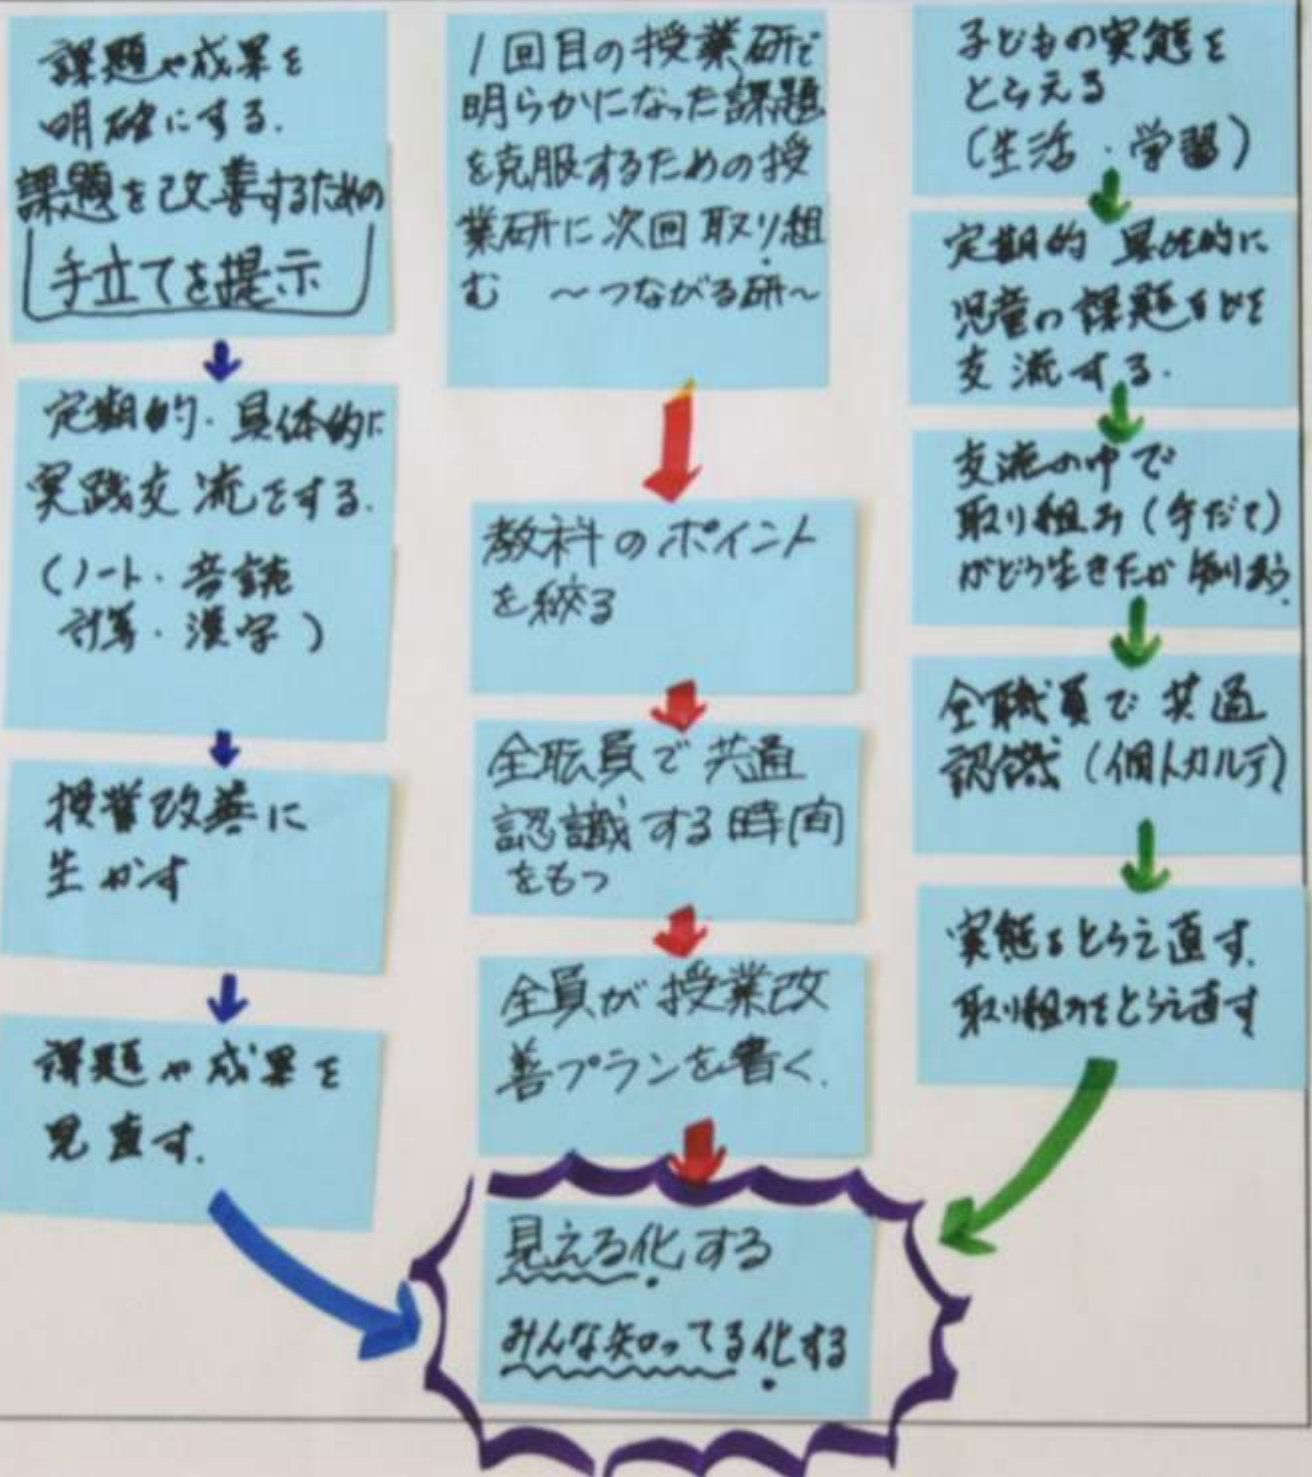 課題や成果を
明確にする.
課題を改善するための
手立てを提示
定期的・具体的に
実践交流をする.
(ノート・音読
計算・漢字)
授業改善に
生かす
課題や成果を
見直す.
1回目の授業研で
明らかになった課題
を克服するための授
業研に次回取り組
む 〜つながる研〜
教科のポイント
を絞る
全職員で共通
認識する時間
をもつ
全員が授業改
善プランを書く.
見える化する
みんな知ってる化する
子どもの実態を
とらえる
(生活・学習)
定期的 具体的に
児童の課題などを
交流する.
交流の中で
取り組み(手だて)
がどう生きたか知りあう.
全職員で共通
認識(個人カルテ)
実態をとらえ直す.
取り組みをとらえ直す